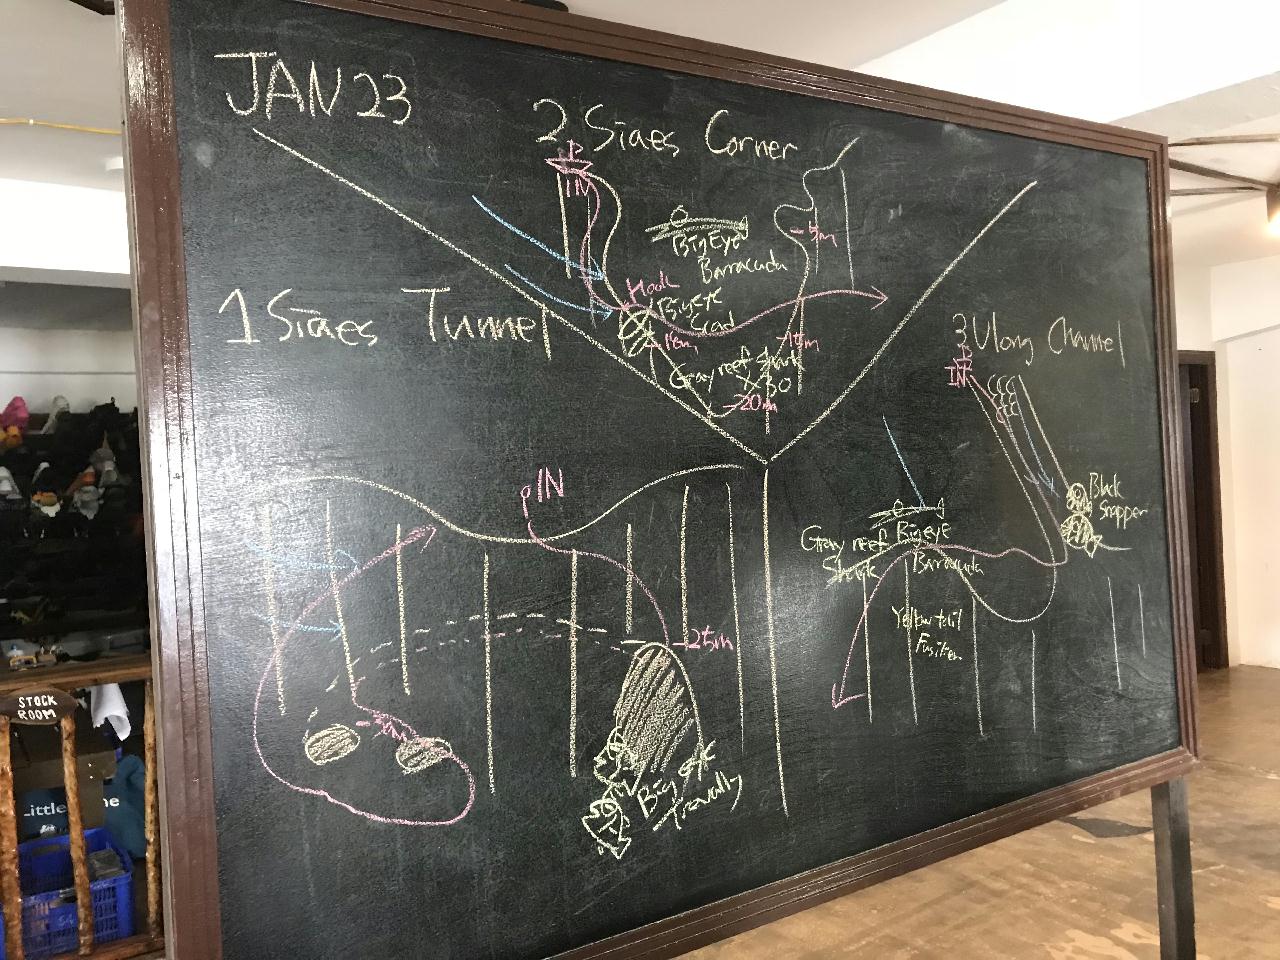 JAN 23
2 Siaes Corner
IN
BigEye
Barracuda
-5m
Hook
Bigeye
Scad
-15m
Gray reef shark
X30
-20m
1 Siaes Tunnel
IN
-25m
Big eye
Trevally
3 Ulong Channel
IN
Black
Snapper
Gray reef
Shark
Bigeye
Barracuda
Yellow tail
Fusilier
STOCK
ROOM